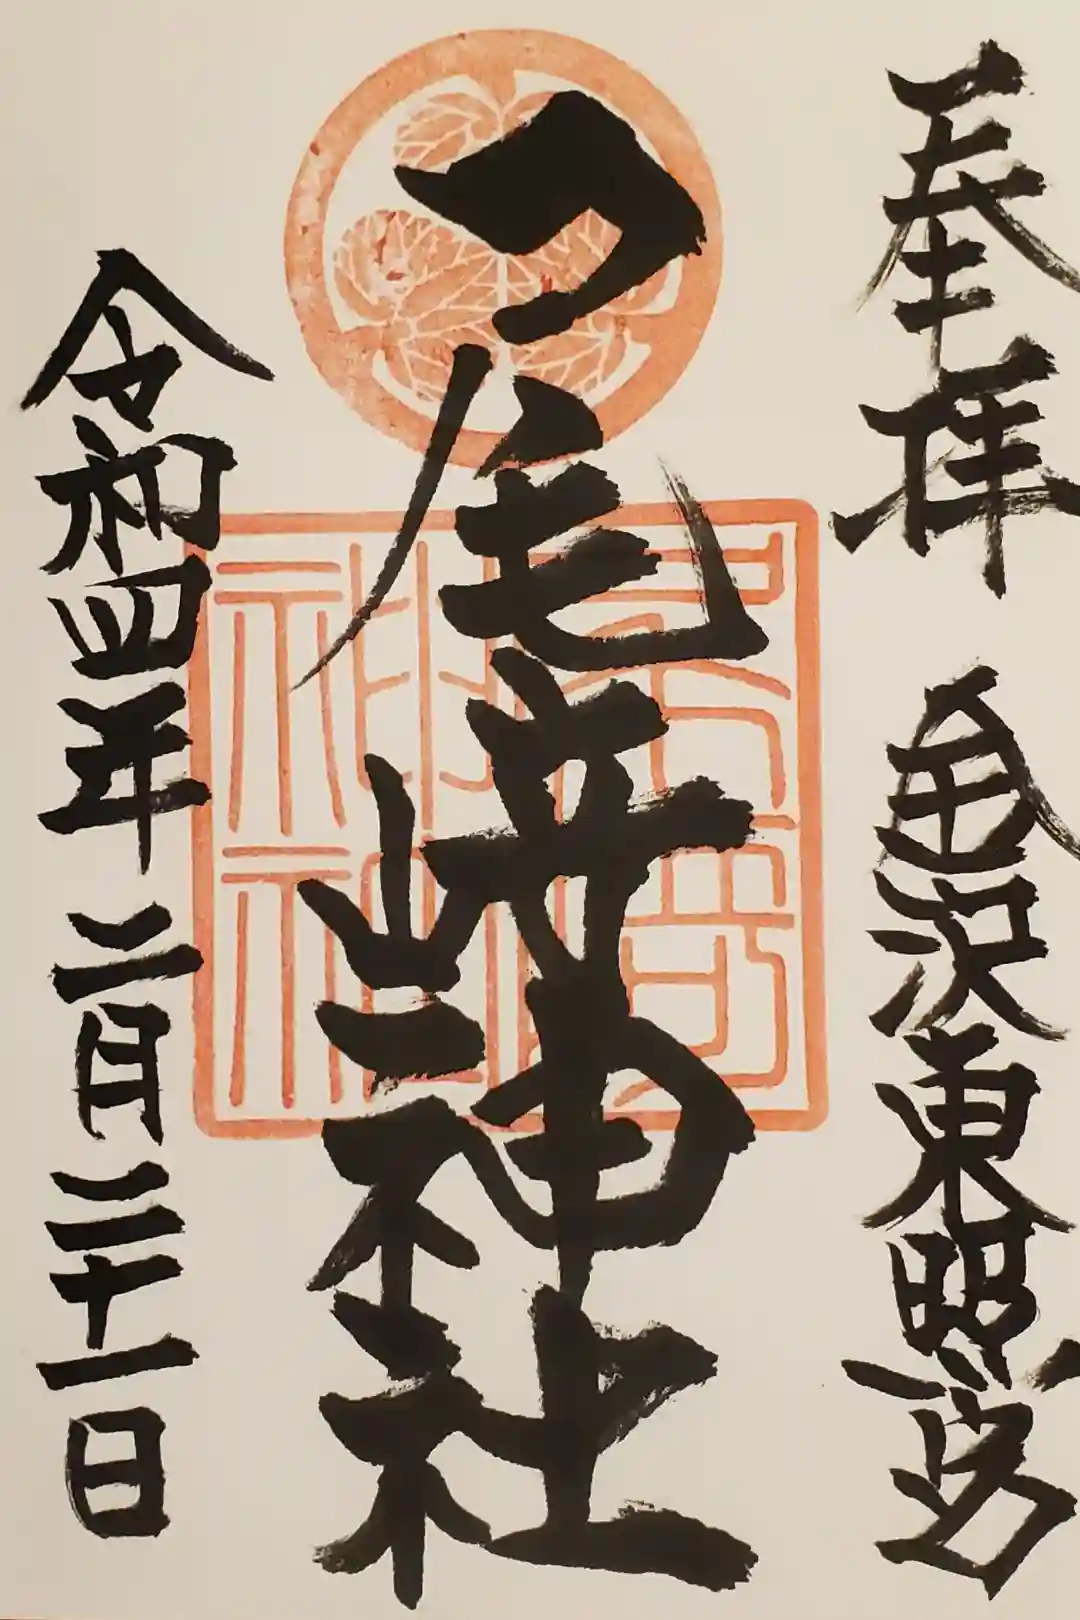 奉拝 金沢東照宮
尾崎神社
令和四年二月二十一日
尾崎神社